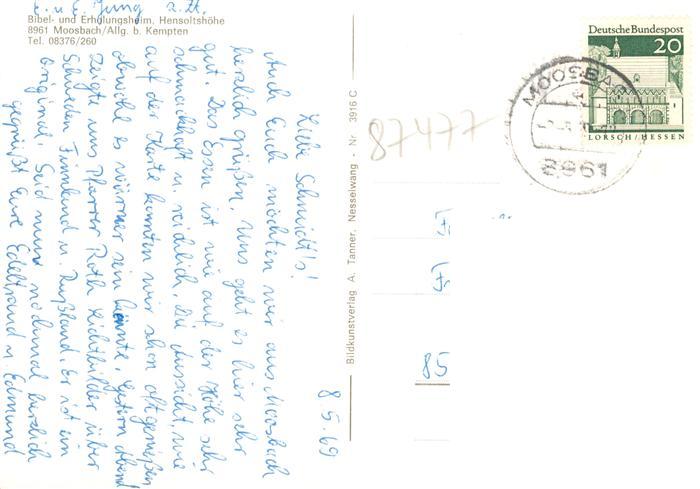 E. u. E. Jung z. Zt.
Bibel- und Erholungsheim, Hensoltshöhe
8961 Moosbach/Allg. b. Kempten
Tel. 08376/260
8.5.69
Liebe Schmidt's!
Auch Euch möchten wir aus Moosbach
herzlich grüßen. Uns geht es hier sehr
gut. Das Essen ist wie auf der Höhe sehr
schmackhaft u. reichlich. Die Aussicht, wie
auf der Karte konnten wir schon oft genießen
obwohl es wärmer sein könnte. Gestern Abend
zeigte uns Pfarrer Roth Lichtbilder über
Schweden Finnland u. Rußland. Er ist ein
Original. Seid nun nochmal herzlich
gegrüßt Eure Edeltraud u. Edmund
Bildkunstverlag A. Tanner, Nesselwang - Nr. 3916 C
87477
Deutsche Bundespost
20
LORSCH/HESSEN
MOOSBA
8961
85